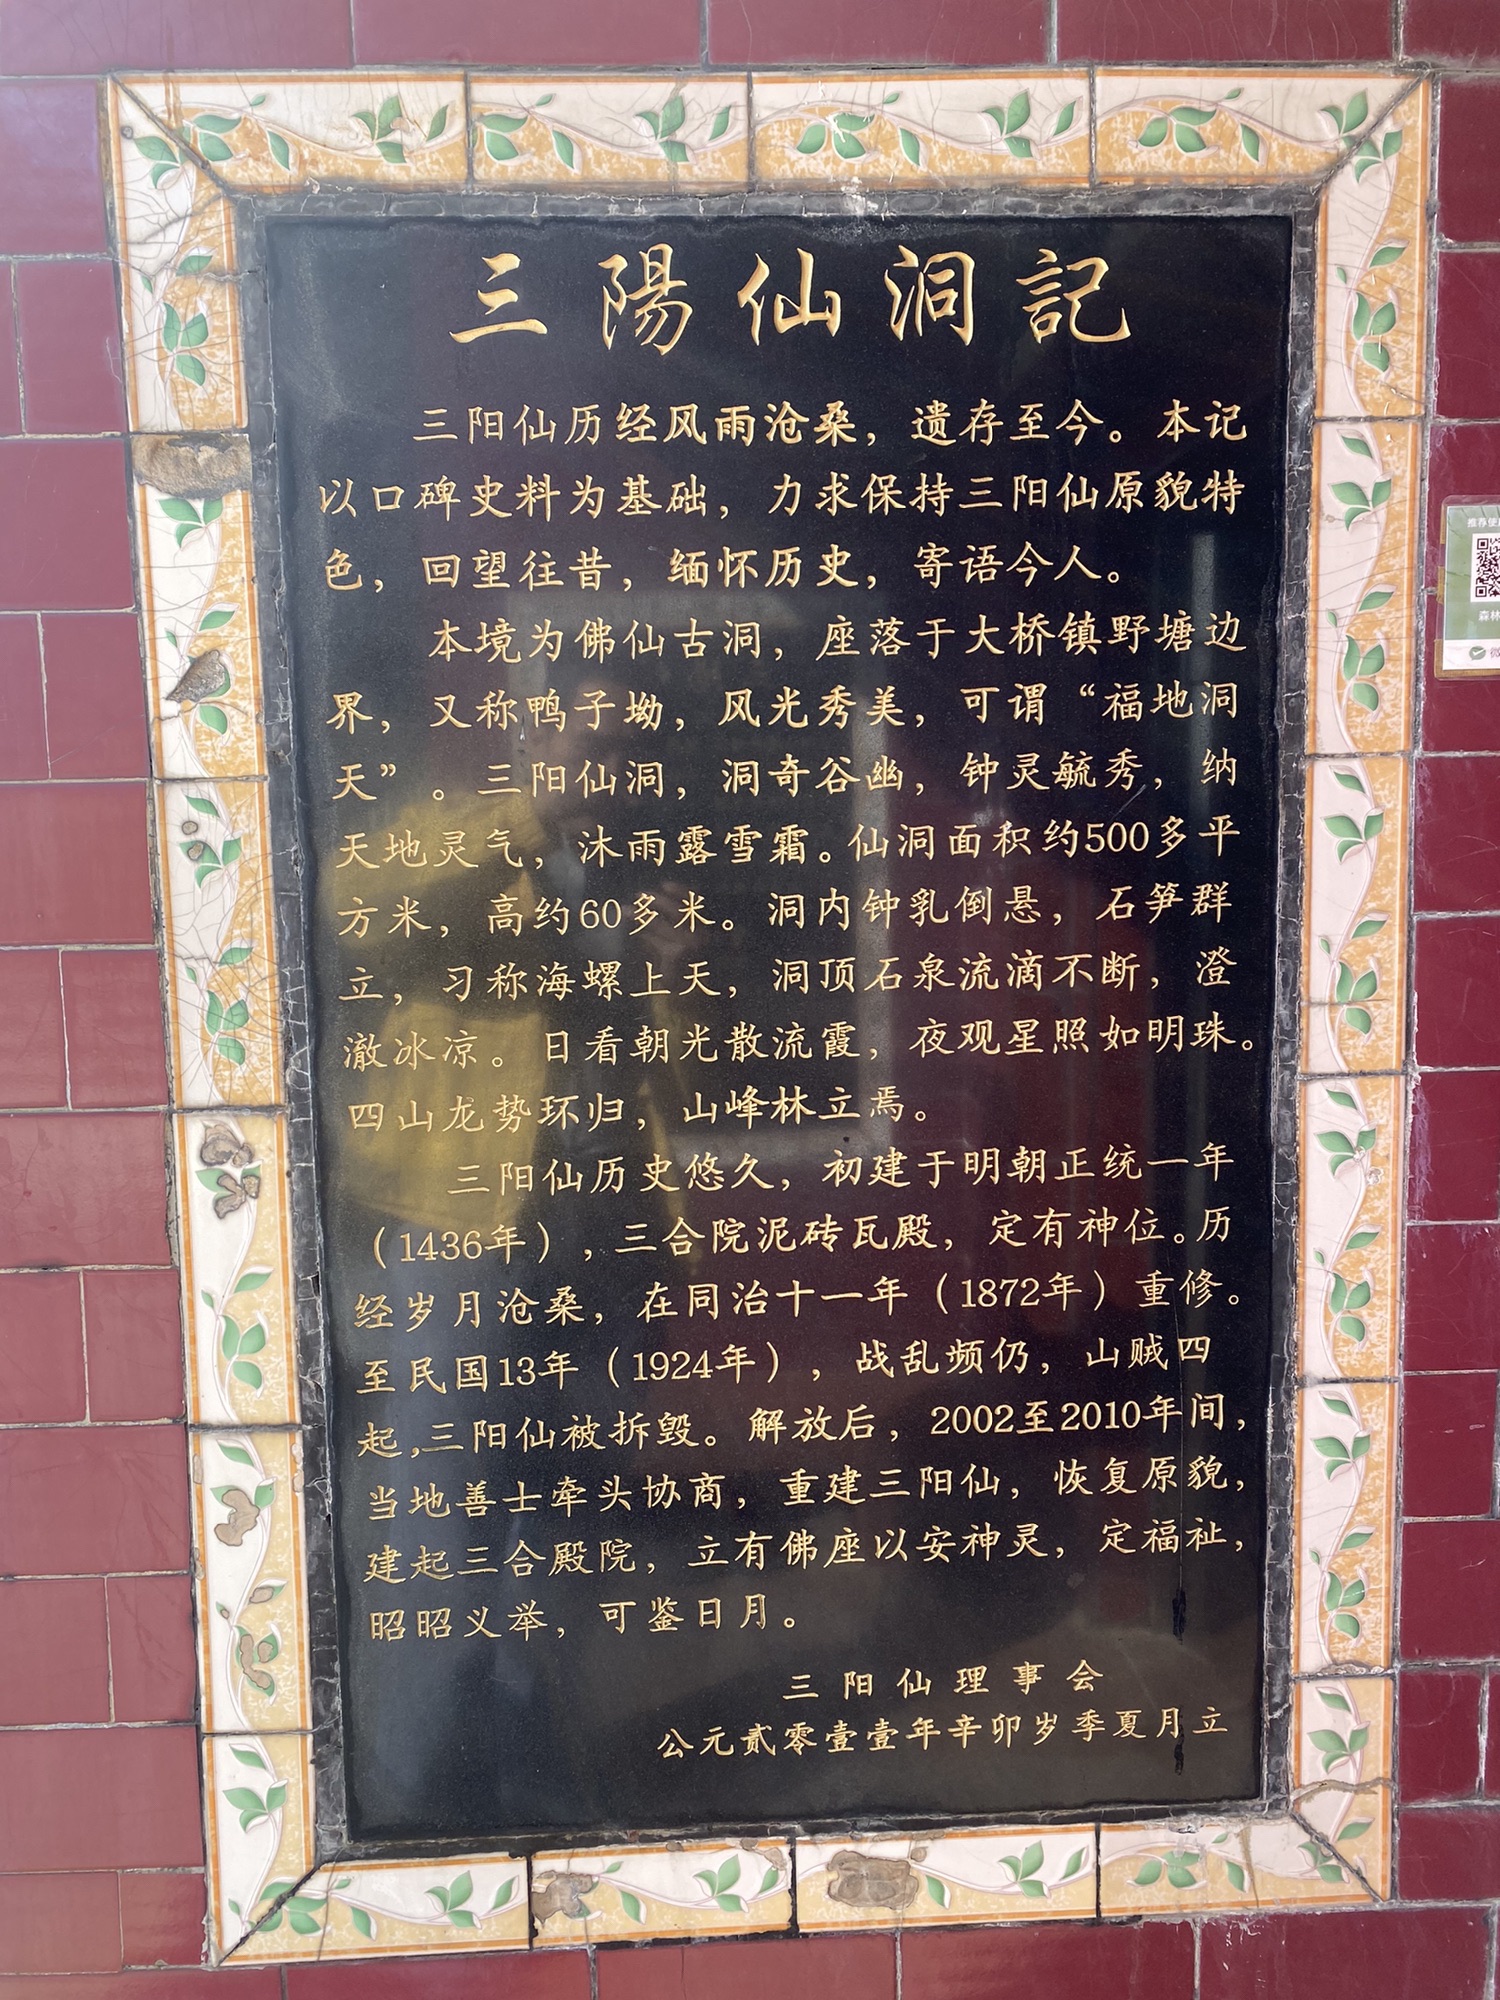 三陽仙洞記
三阳仙历经风雨沧桑，遗存至今。本记
以口碑史料为基础，力求保持三阳仙原貌特
色，回望往昔，缅怀历史，寄语今人。
本境为佛仙古洞，座落于大桥镇野塘边
界，又称鸭子坳，风光秀美，可谓“福地洞
天”。三阳仙洞，洞奇谷幽，钟灵毓秀，纳
天地灵气，沐雨露雪霜。仙洞面积约500多平
方米，高约60多米。洞内钟乳倒悬，石笋群
立，习称海螺上天，洞顶石泉流滴不断，澄
澈冰凉。日看朝光散流霞，夜观星照如明珠。
四山龙势环归，山峰林立焉。
三阳仙历史悠久，初建于明朝正统一年
（1436年），三合院泥砖瓦殿，定有神位。历
经岁月沧桑，在同治十一年（1872年）重修。
至民国13年（1924年），战乱频仍，山贼四
起，三阳仙被拆毁。解放后，2002至2010年间，
当地善士牵头协商，重建三阳仙，恢复原貌，
建起三合殿院，立有佛座以安神灵，定福祉，
昭昭义举，可鉴日月。
三阳仙理事会
公元贰零壹壹年辛卯岁季夏月立
推荐使
森林
微